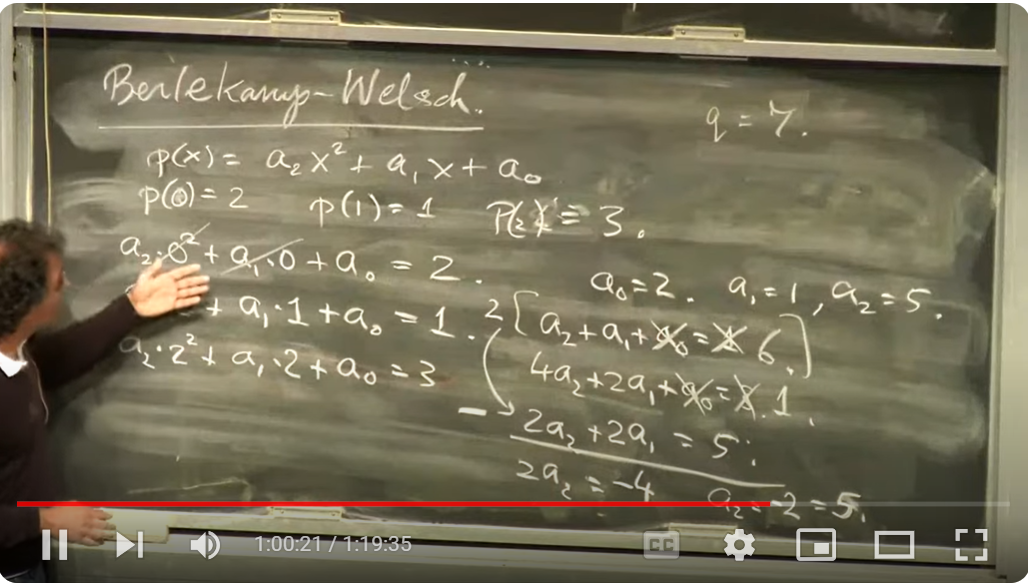 Berlekamp-Welsch.
q = 7.
p(x) = a₂x² + a₁x + a₀
p(0) = 2 p(1) = 1 P(2) = 3.
a₂·0² + a₁·0 + a₀ = 2.
a₀ = 2. a₁ = 1, a₂ = 5.
+ a₁·1 + a₀ = 1.
2[a₂ + a₁ + a₀ = 1 6.]
a₂·2² + a₁·2 + a₀ = 3
4a₂ + 2a₁ + a₀ = 3. 1.
- 2a₂ + 2a₁ = 5.
2a₂ = -4 a₂ = -2 = 5.
1:00:21 / 1:19:35
CC